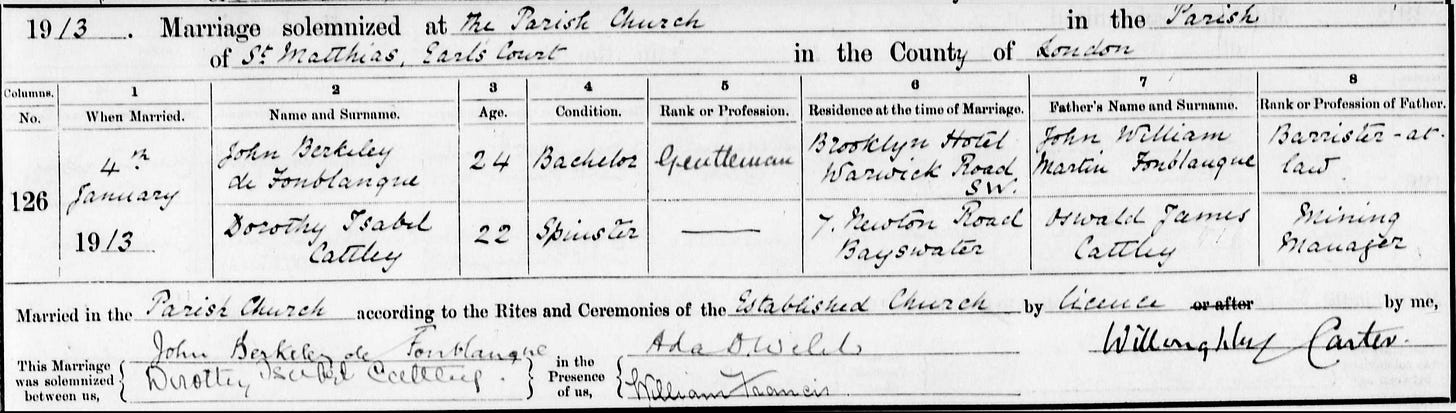 1913. Marriage solemnized at the Parish Church in the Parish
of St. Matthias, Earls Court in the County of London
Columns. 1 2 3 4 5 6 7 8
No. When Married. Name and Surname. Age. Condition. Rank or Profession. Residence at the time of Marriage. Father's Name and Surname. Rank or Profession of Father.
126
4th
January
1913
John Berkeley
de Fonblanque
24
Bachelor
Gentleman
Brooklyn Hotel
Warwick Road
S.W.
John William
Martin Fonblanque
Barrister-at-
law
Dorothy Isabel
Cattley
22
Spinster
7. Newton Road
Bayswater
Oswald James
Cattley
Mining
Manager
Married in the Parish Church according to the Rites and Ceremonies of the Established Church by licence or after by me,
Willoughby Carter.
This Marriage
was solemnized
between us,
John Berkeley de Fonblanque
Dorothy Isabel Cattley.
in the
Presence
of us,
Ada D.
William Francis